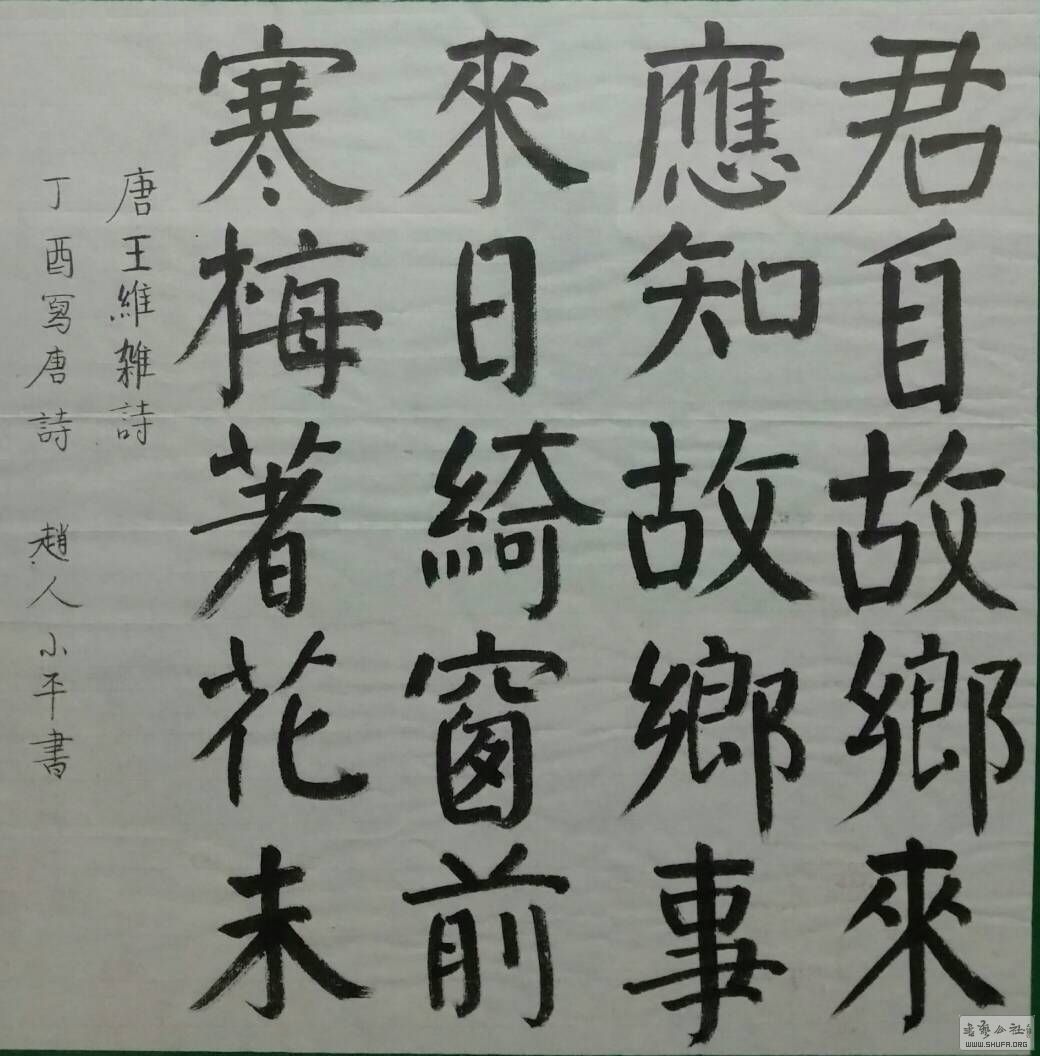 君自故鄉來
應知故鄉事
來日綺窗前
寒梅著花未
唐王維雑詩
丁酉寫唐詩 趙人小平書
书艺公社
WWW.SHUFA.ORG